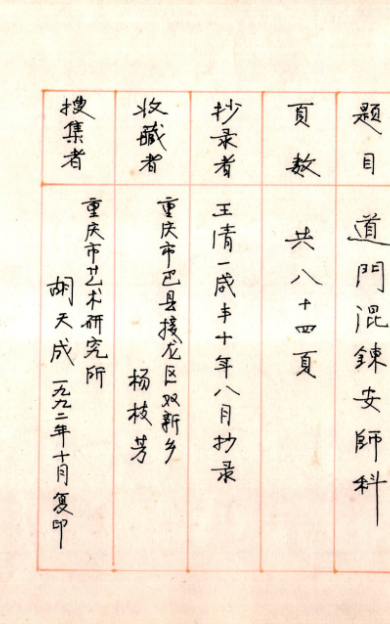 题目
道門混鍊安師科
頁数
共八十四頁
抄录者
王清一咸丰十年八月抄录
收藏者
重庆市巴县接龙区双新乡
杨枝芳
搜集者
重庆市艺术研究所
胡天成一九九二年十月复印